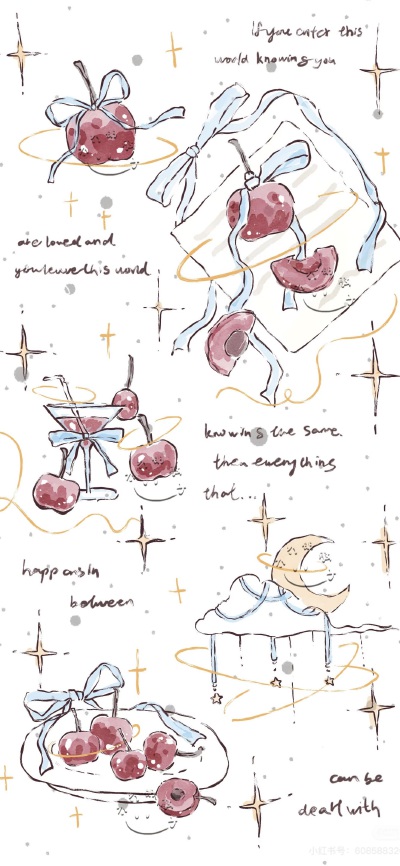 If you enter this
world knowing you
are loved and
you leave this world
knowing the same.
then everything
that...
happens in
between
can be
dealt with
小红书号: